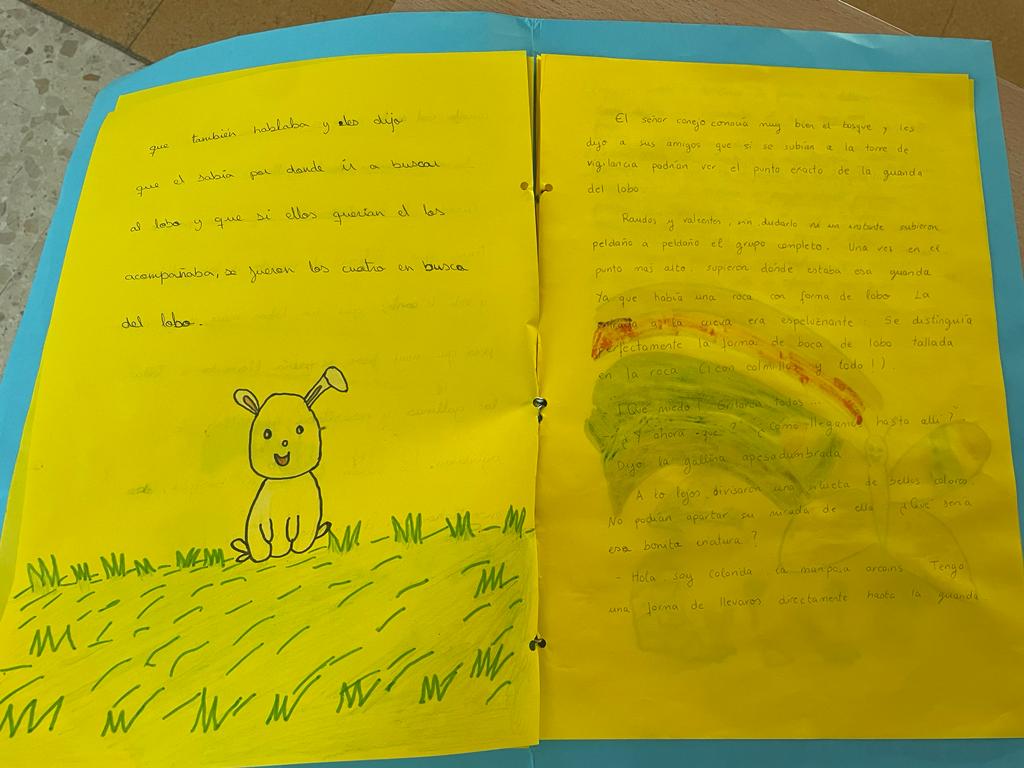 que también hablaba y les dijo
que el sabía por donde ir a buscar
al lobo y que si ellos querían el los
acompañaba, se fueron los cuatro en busca
del lobo.
El señor conejo conocía muy bien el bosque y les
dijo a sus amigos que si se subían a la torre de
vigilancia podrían ver el punto exacto de la guarida
del lobo.
Raudos y valientes, sin dudarlo ni un instante subieron
peldaño a peldaño el grupo completo. Una vez en el
punto mas alto, supieron dónde estaba esa guarida
Ya que había una roca con forma de lobo. La
entrada a la cueva era espeluznante. Se distinguía
perfectamente la forma de boca de lobo tallada
en la roca (¡¡con colmillos y todo!!).
¡Qué miedo! Gritaron todos...
¿Y ahora qué? ¿cómo llegamos hasta allí?
Dijo la gallina apesadumbrada
A lo lejos, divisaron una silueta de bellos colores.
No podían apartar su mirada de ella ¿Qué sería
esa bonita criatura?
- Hola soy Colorida la mariposa arcoiris. Tengo
una forma de llevaros directamente hasta la guarida